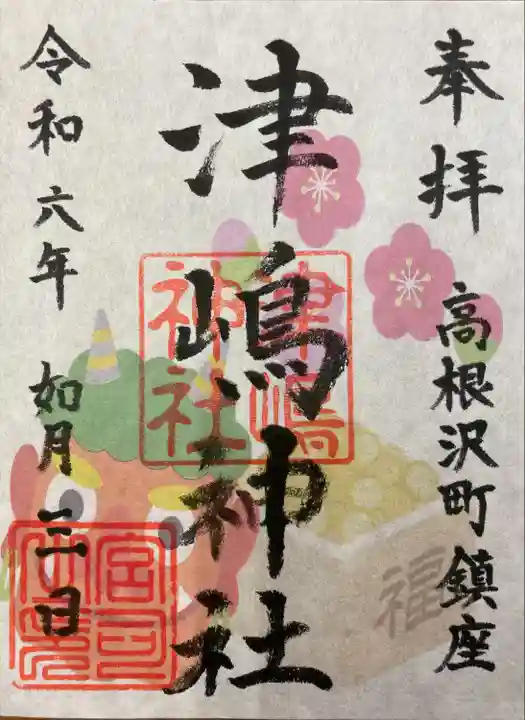 奉拝
高根沢町鎮座
津嶋神社
津嶋
神社
令和六年 如月 三日
福
宮司